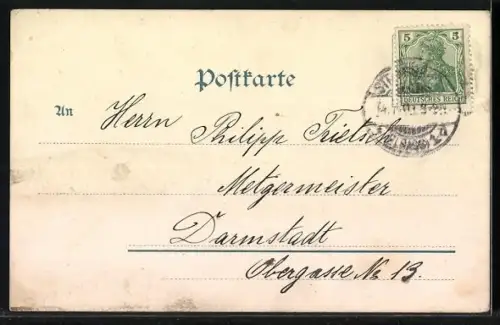 5 5
DEUTSCHES REICH
Postkarte
An
Herrn Philipp Trietsch
Metzgermeister
Darmstadt
Obergasse No 13.